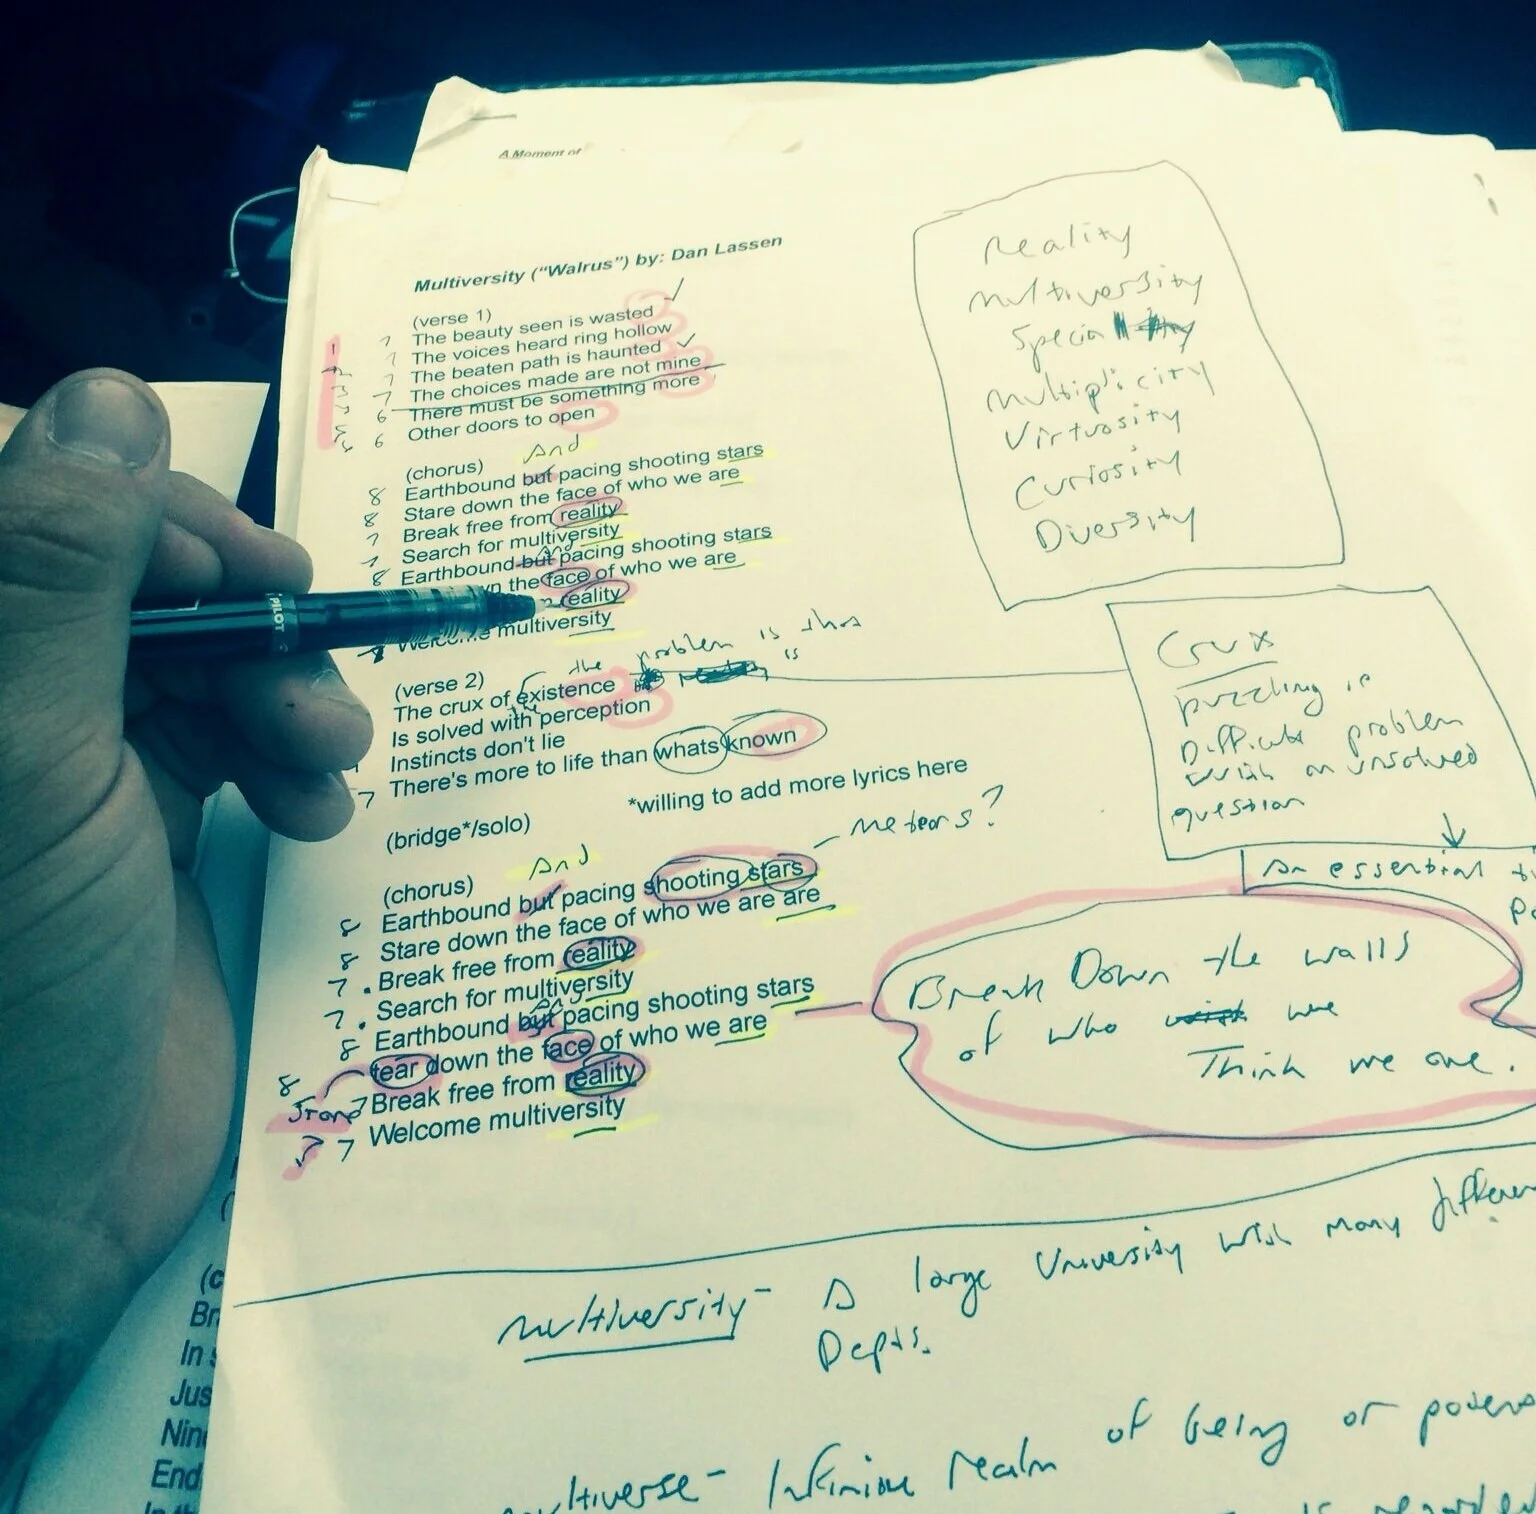 A Moment of
Multiversity ("Walrus") by: Dan Lassen
(verse 1)
7 The beauty seen is wasted
7 The voices heard ring hollow
7 The beaten path is haunted
7 The choices made are not mine
6 There must be something more
6 Other doors to open
And
(chorus)
8 Earthbound but pacing shooting stars
8 Stare down the face of who we are
7 Break free from reality
7 Search for multiversity
And
8 Earthbound but pacing shooting stars
the face of who we are
reality
Welcome multiversity
the problem is this
is
(verse 2)
The crux of existence
the
Is solved with perception
Instincts don't lie
7 There's more to life than whats known
*willing to add more lyrics here
(bridge*/solo)
Meteors?
And
(chorus)
8 Earthbound but pacing shooting stars
8 Stare down the face of who we are are
7 . Break free from reality
7 . Search for multiversity
And
8 Earthbound but pacing shooting stars
8 tear down the face of who we are
7 Break free from reality
7 Welcome multiversity
Reality
Multiversity
Special
Multiplicity
Virtuosity
Curiosity
Diversity
Crux
puzzling or
Difficult problem
with an unsolved
question
An essential
Break Down the walls
of who we
Think we are.
multiversity - A large University with many differen
Depts.
multiverse - Infinine realm of being or potenc
is regarded
PILOT
(c
Br
In s
Jus
Nin
End